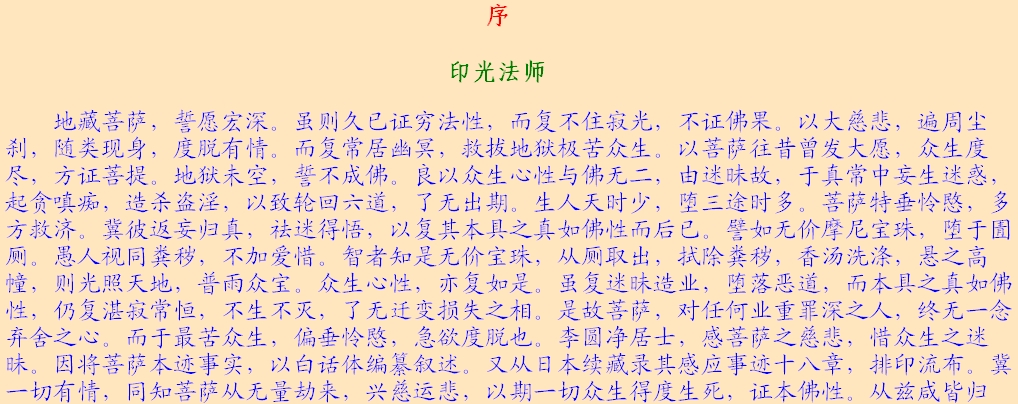 序
印光法师
地藏菩萨，誓愿宏深。虽则久已证穷法性，而复不住寂光，不证佛果。以大慈悲，遍周尘
刹，随类现身，度脱有情。而复常居幽冥，救拔地狱极苦众生。以菩萨往昔曾发大愿，众生度
尽，方证菩提。地狱未空，誓不成佛。良以众生心性与佛无二，由迷昧故，于真常中妄生迷惑，
起贪嗔痴，造杀盗淫，以致轮回六道，了无出期。生人天时少，堕三途时多。菩萨特垂怜愍，多
方救济。冀彼返妄归真，祛迷得悟，以复其本具之真如佛性而后已。譬如无价摩尼宝珠，堕于圊
厕。愚人视同粪秽，不加爱惜。智者知是无价宝珠，从厕取出，拭除粪秽，香汤洗涤，悬之高
幢，则光照天地，普雨众宝。众生心性，亦复如是。虽复迷昧造业，堕落恶道，而本具之真如佛
性，仍复湛寂常恒，不生不灭，了无迁变损失之相。是故菩萨，对任何业重罪深之人，终无一念
弃舍之心。而于最苦众生，偏垂怜愍，急欲度脱也。李圆净居士，感菩萨之慈悲，惜众生之迷
昧。因将菩萨本迹事实，以白话体编纂叙述。又从日本续藏录其感应事迹十八章，排印流布。冀
一切有情，同知菩萨从无量劫来，兴慈运悲，以期一切众生得度生死，证本佛性。从兹咸皆归